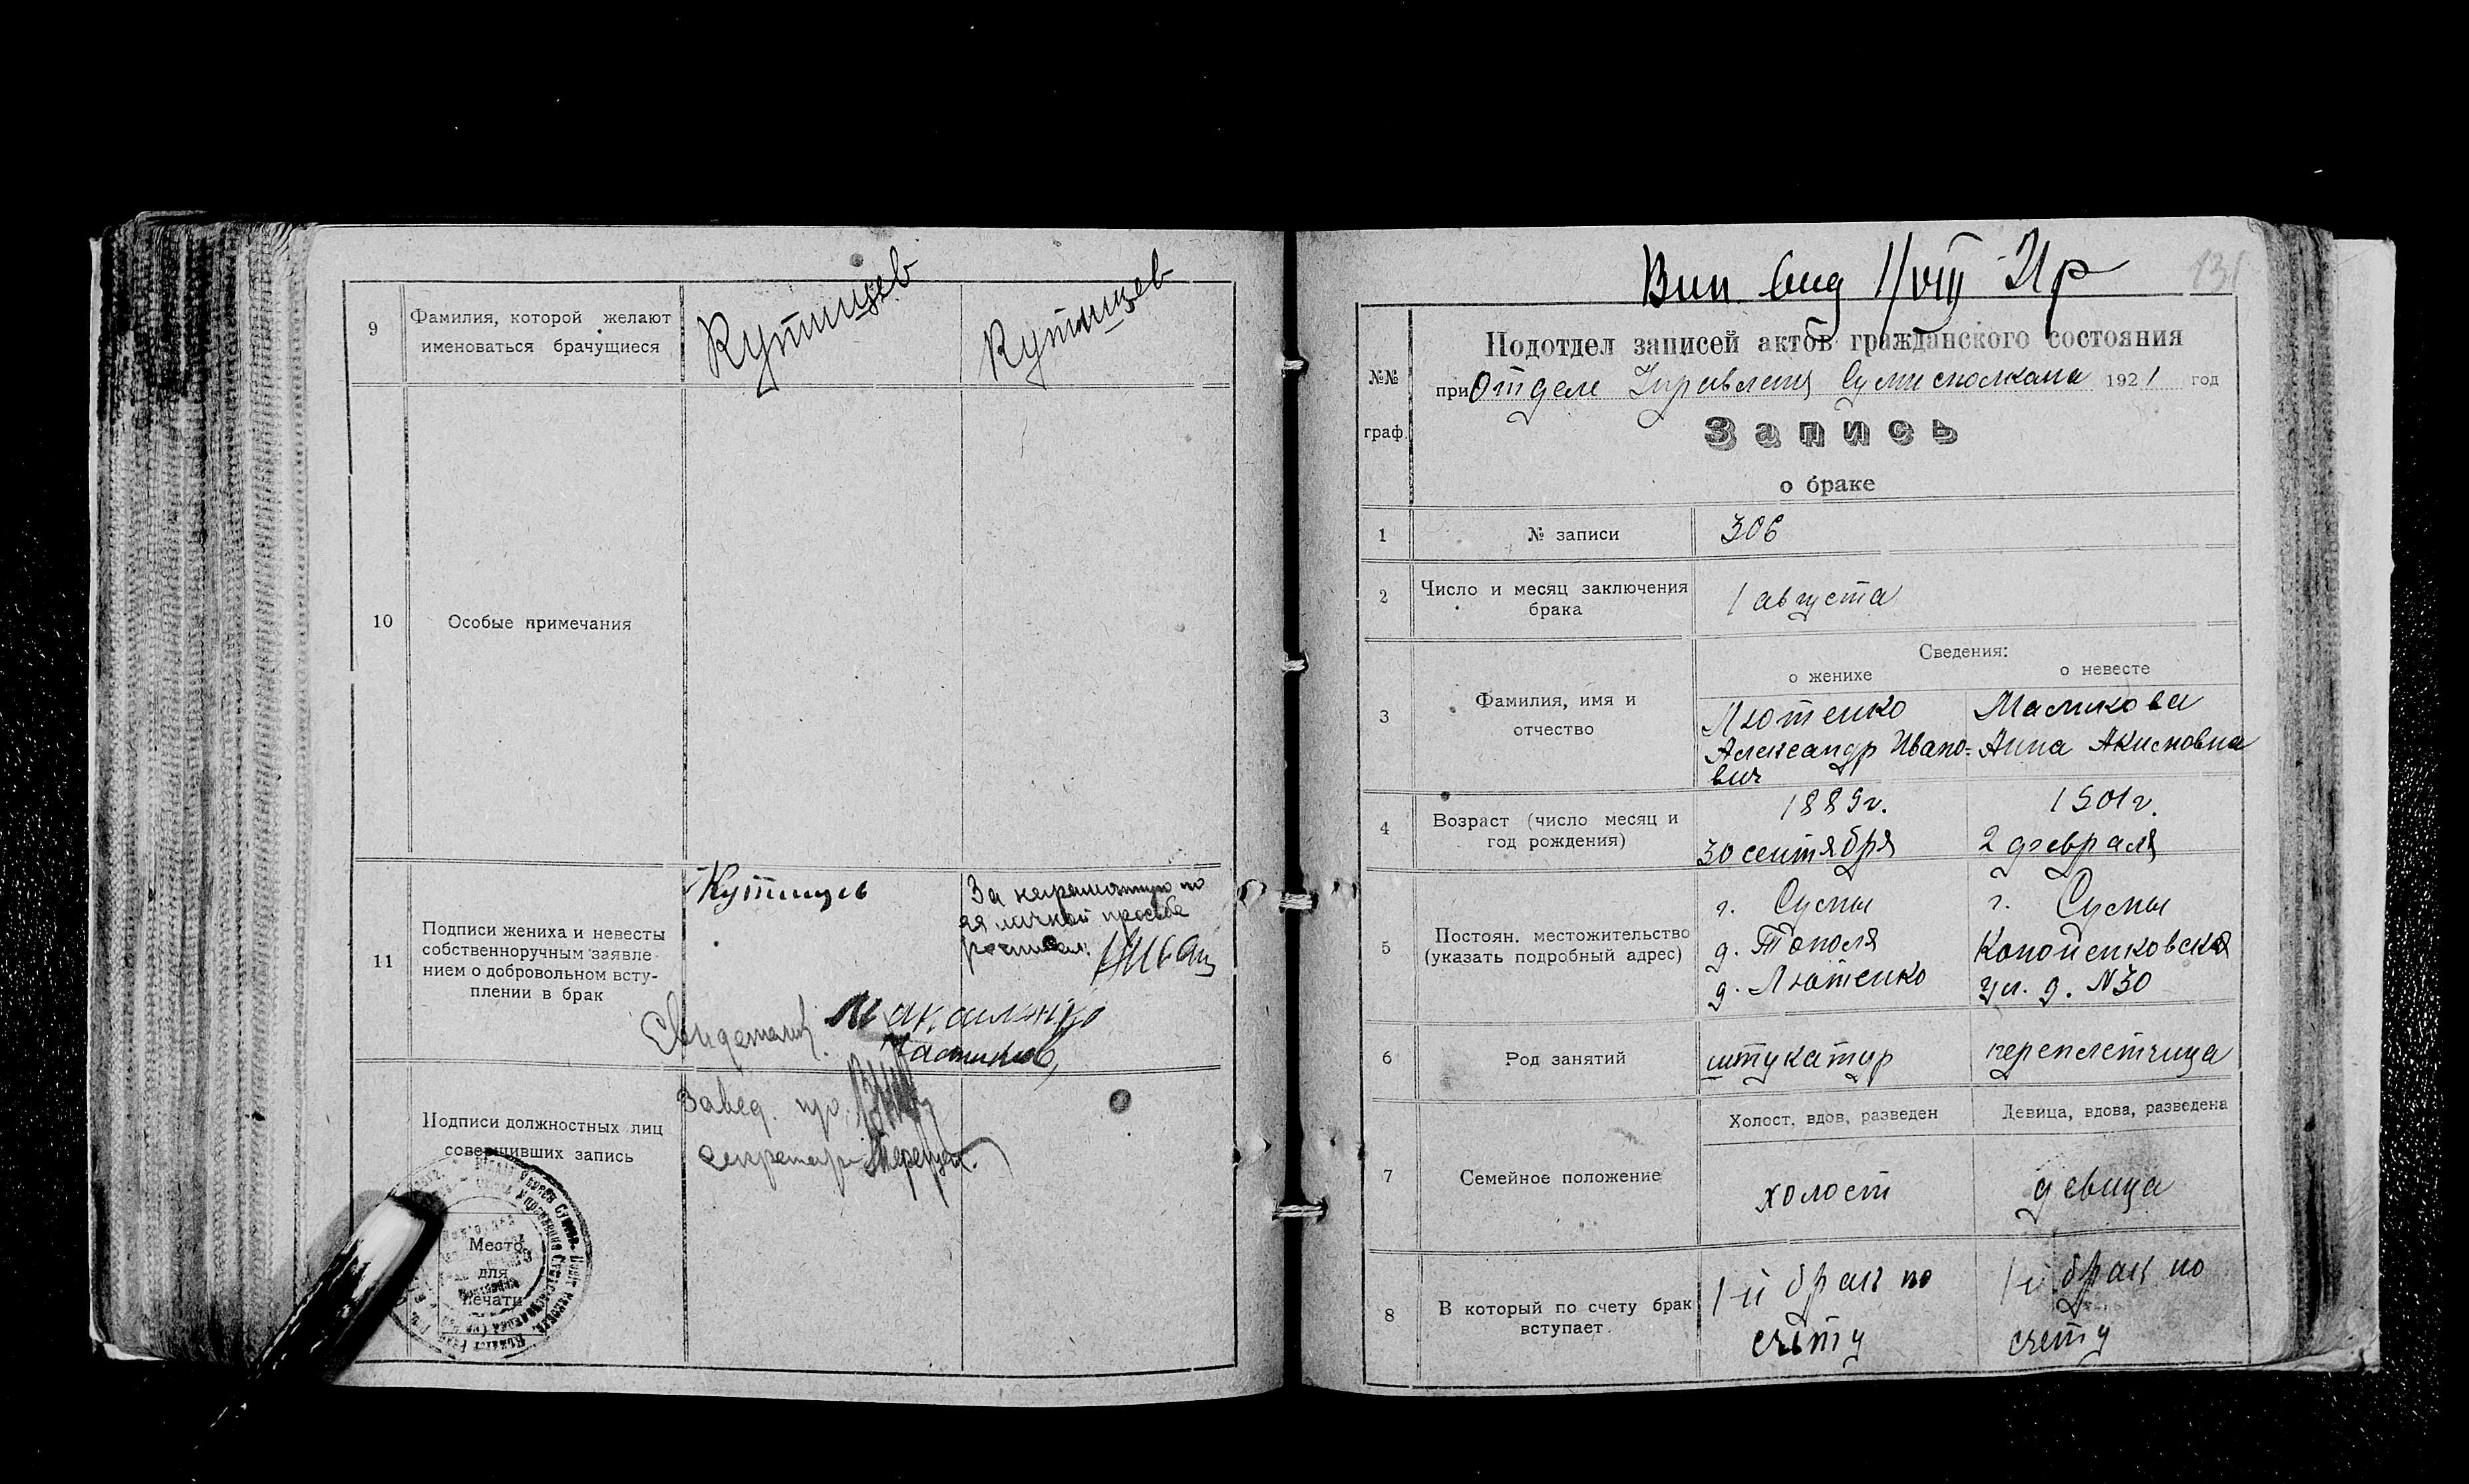 9
Фамилия, которой желают
именоваться брачущиеся
Кутищев
Кутищев
10
Особые примечания
11
Подписи жениха и невесты
собственноручным заявле-
нием о добровольном всту-
плении в брак
Кутищев
За неграмотную по
ея личной просьбе
Свидетели:
Подписи должностных лиц
совершивших запись
Завед.
Секретарь
Место
для
печати
131
Вып. вид 1/VIII 21 р
№№
граф.
Подотдел записей актов гражданского состояния
при Отделе Управления Сумисполкома 1921 год
Запись
о браке
1
№ записи
306
2
Число и месяц заключения
брака
1 августа
3
Фамилия, имя и
отчество
Сведения:
о женихе
о невесте
Лютенко
Александр Ивано-
вич
Анна
4
Возраст (число месяц и
год рождения)
1889 г.
30 сентября
1901 г.
2 февраля
5
Постоян. местожительство
(указать подробный адрес)
г. Сумы
д. Тополя
д. Лютенко
г. Сумы
ул. д. №30
6
Род занятий
штукатур
переплетчица
7
Семейное положение
Холост, вдов, разведен
Девица, вдова, разведена
холост
девица
8
В который по счету брак
вступает.
1-й брак по
счету
1-й брак по
счету